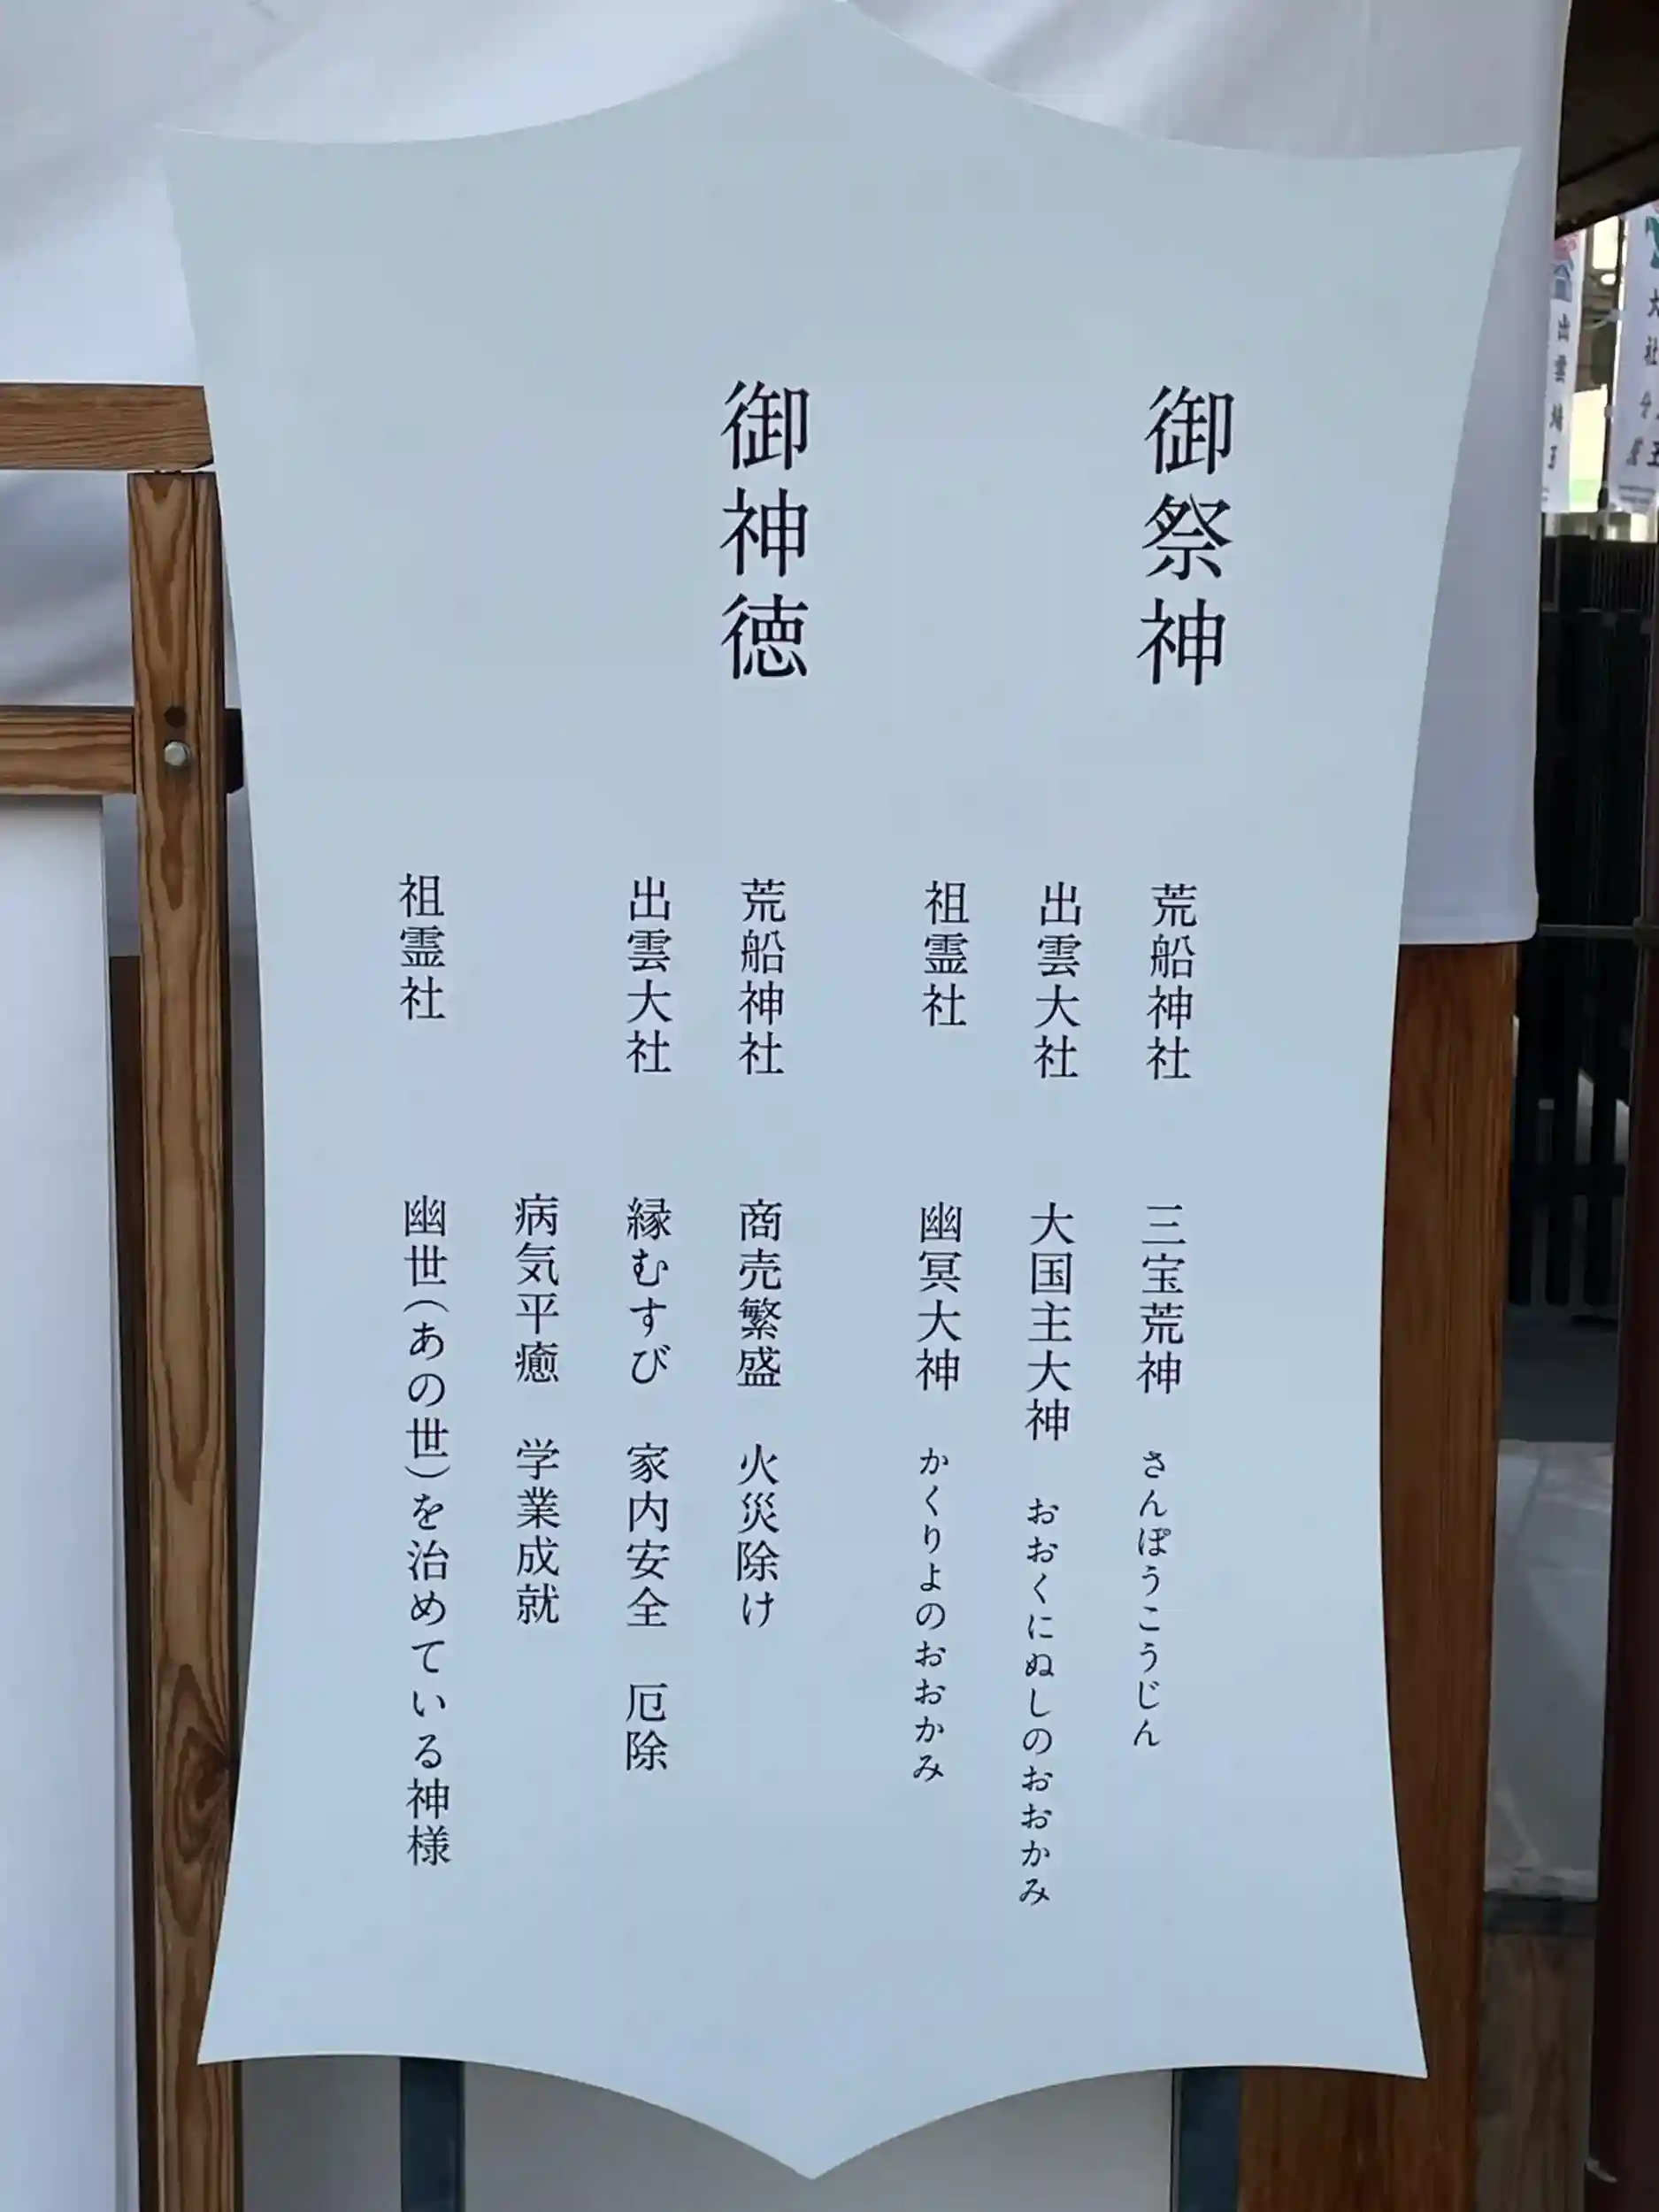 御祭神
荒船神社 三宝荒神 さんぽうこうじん
出雲大社 大国主大神 おおくにぬしのおおかみ
祖霊社 幽冥大神 かくりよのおおかみ
御神徳
荒船神社 商売繁盛 火災除け
出雲大社 縁むすび 家内安全 厄除
病気平癒 学業成就
祖霊社 幽世(あの世)を治めている神様
大社
出雲